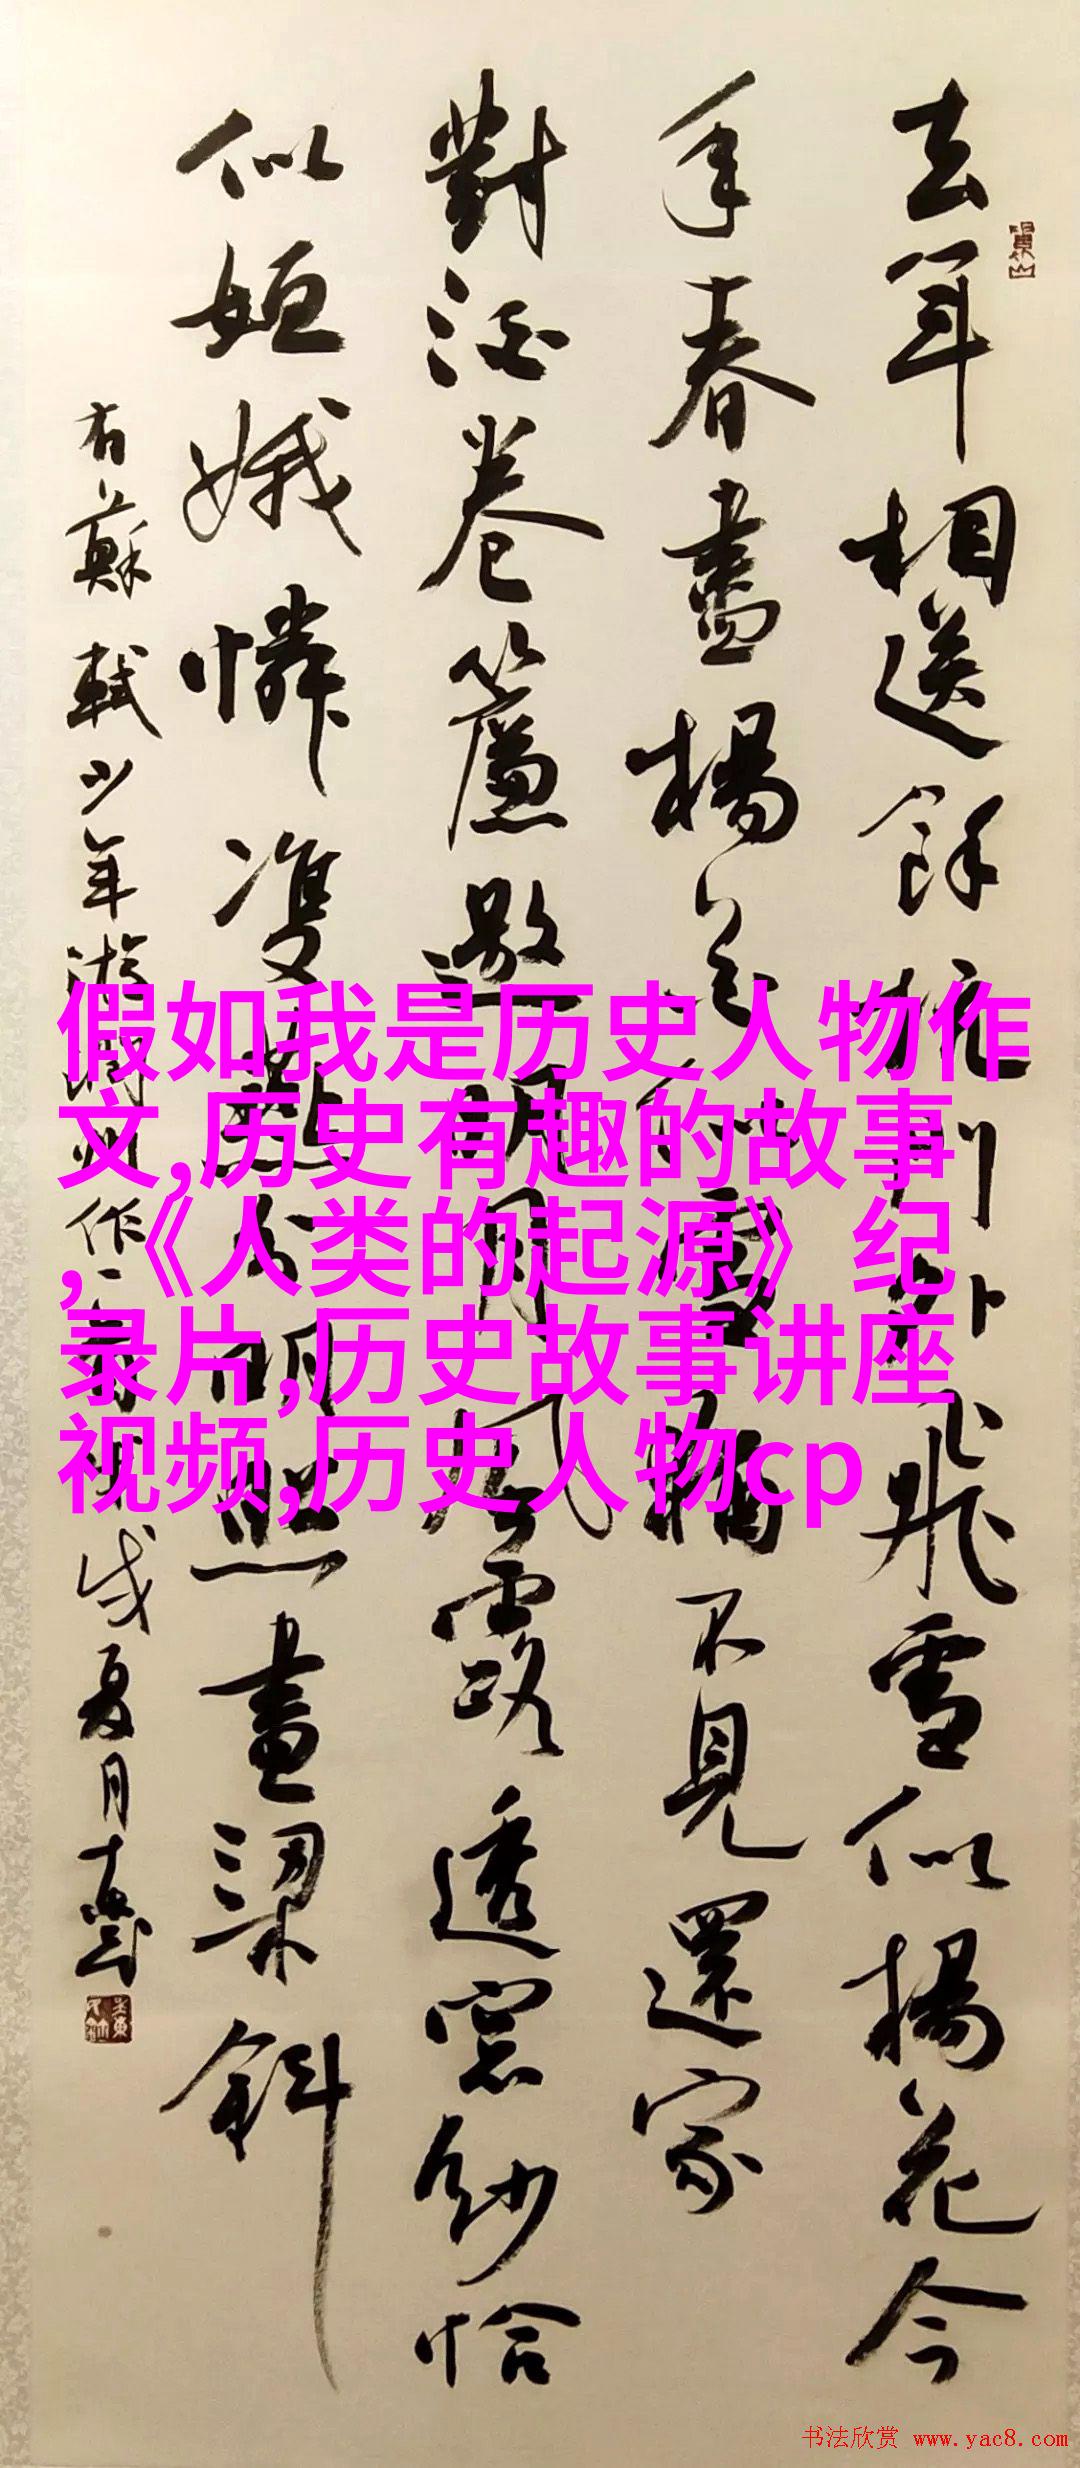 去年相送餘杭門外飛雪似楊花今
年春盡楊花似雪猶不見還家
對酒卷簾邀明月風露透窓紗恰
似姮娥憐雙燕分明照畫梁斜
右蘇軾少年游潤州作 戌夏月
假如我是历史人物作
文,历史有趣的故事
,《人类的起源》纪
录片,历史故事讲座
视频,历史人物cp
书法欣赏 www.yac8.com